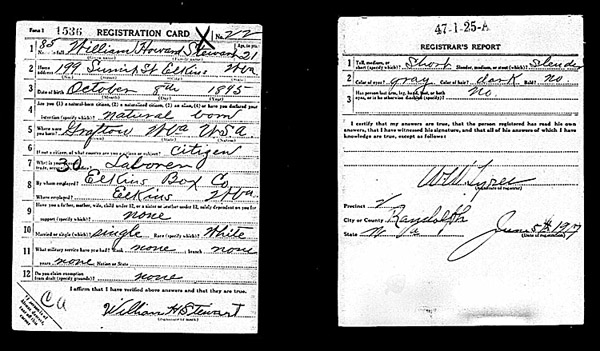 Form 1 1536 REGISTRATION CARD X No. 22
1 85 Name in full William Howard Stewart Age, in yrs. 21
2 Home address 199 Summit St Elkins W Va
3 Date of birth October 8th 1895
4 Are you (1) a natural-born citizen, (2) a naturalized citizen, (3) an alien, (4) or have you declared your
intention (specify which)? natural born
5 Where were you born? Grafton W Va USA
6 If not a citizen, of what country are you a citizen or subject? citizen
7 What is your present trade, occupation 30 Laborer
8 By whom employed? Elkins Box Co
Where employed? Elkins W Va.
9 Have you a father, mother, wife, child under 12, or a sister or brother under 12, solely dependent on you for
support (specify which)? none
10 Married or single (which)? single Race (specify which)? White
11 What military service have you had? Rank none branch none
years none Nation or State
12 Do you claim exemption
from draft (specify grounds)? none
I affirm that I have verified above answers and that they are true.
William H Stewart
(Signature or mark)
47-1-25-A
REGISTRAR'S REPORT
1 Tall, medium, or short (specify which)? Short Slender, medium, or stout (which)? Slender
2 Color of eyes? gray Color of hair? dark Bald? No
3 Has person lost arm, leg, hand, foot, or both
eyes, or is he otherwise disabled (specify)? No.
I certify that my answers are true, that the person registered has read his own
answers, that I have witnessed his signature, and that all of his answers of which I have
knowledge are true, except as follows:
(Signature of registrar)
Precinct 2
City or County Randolph
State W Va June 5th 1917
(Date of registration)